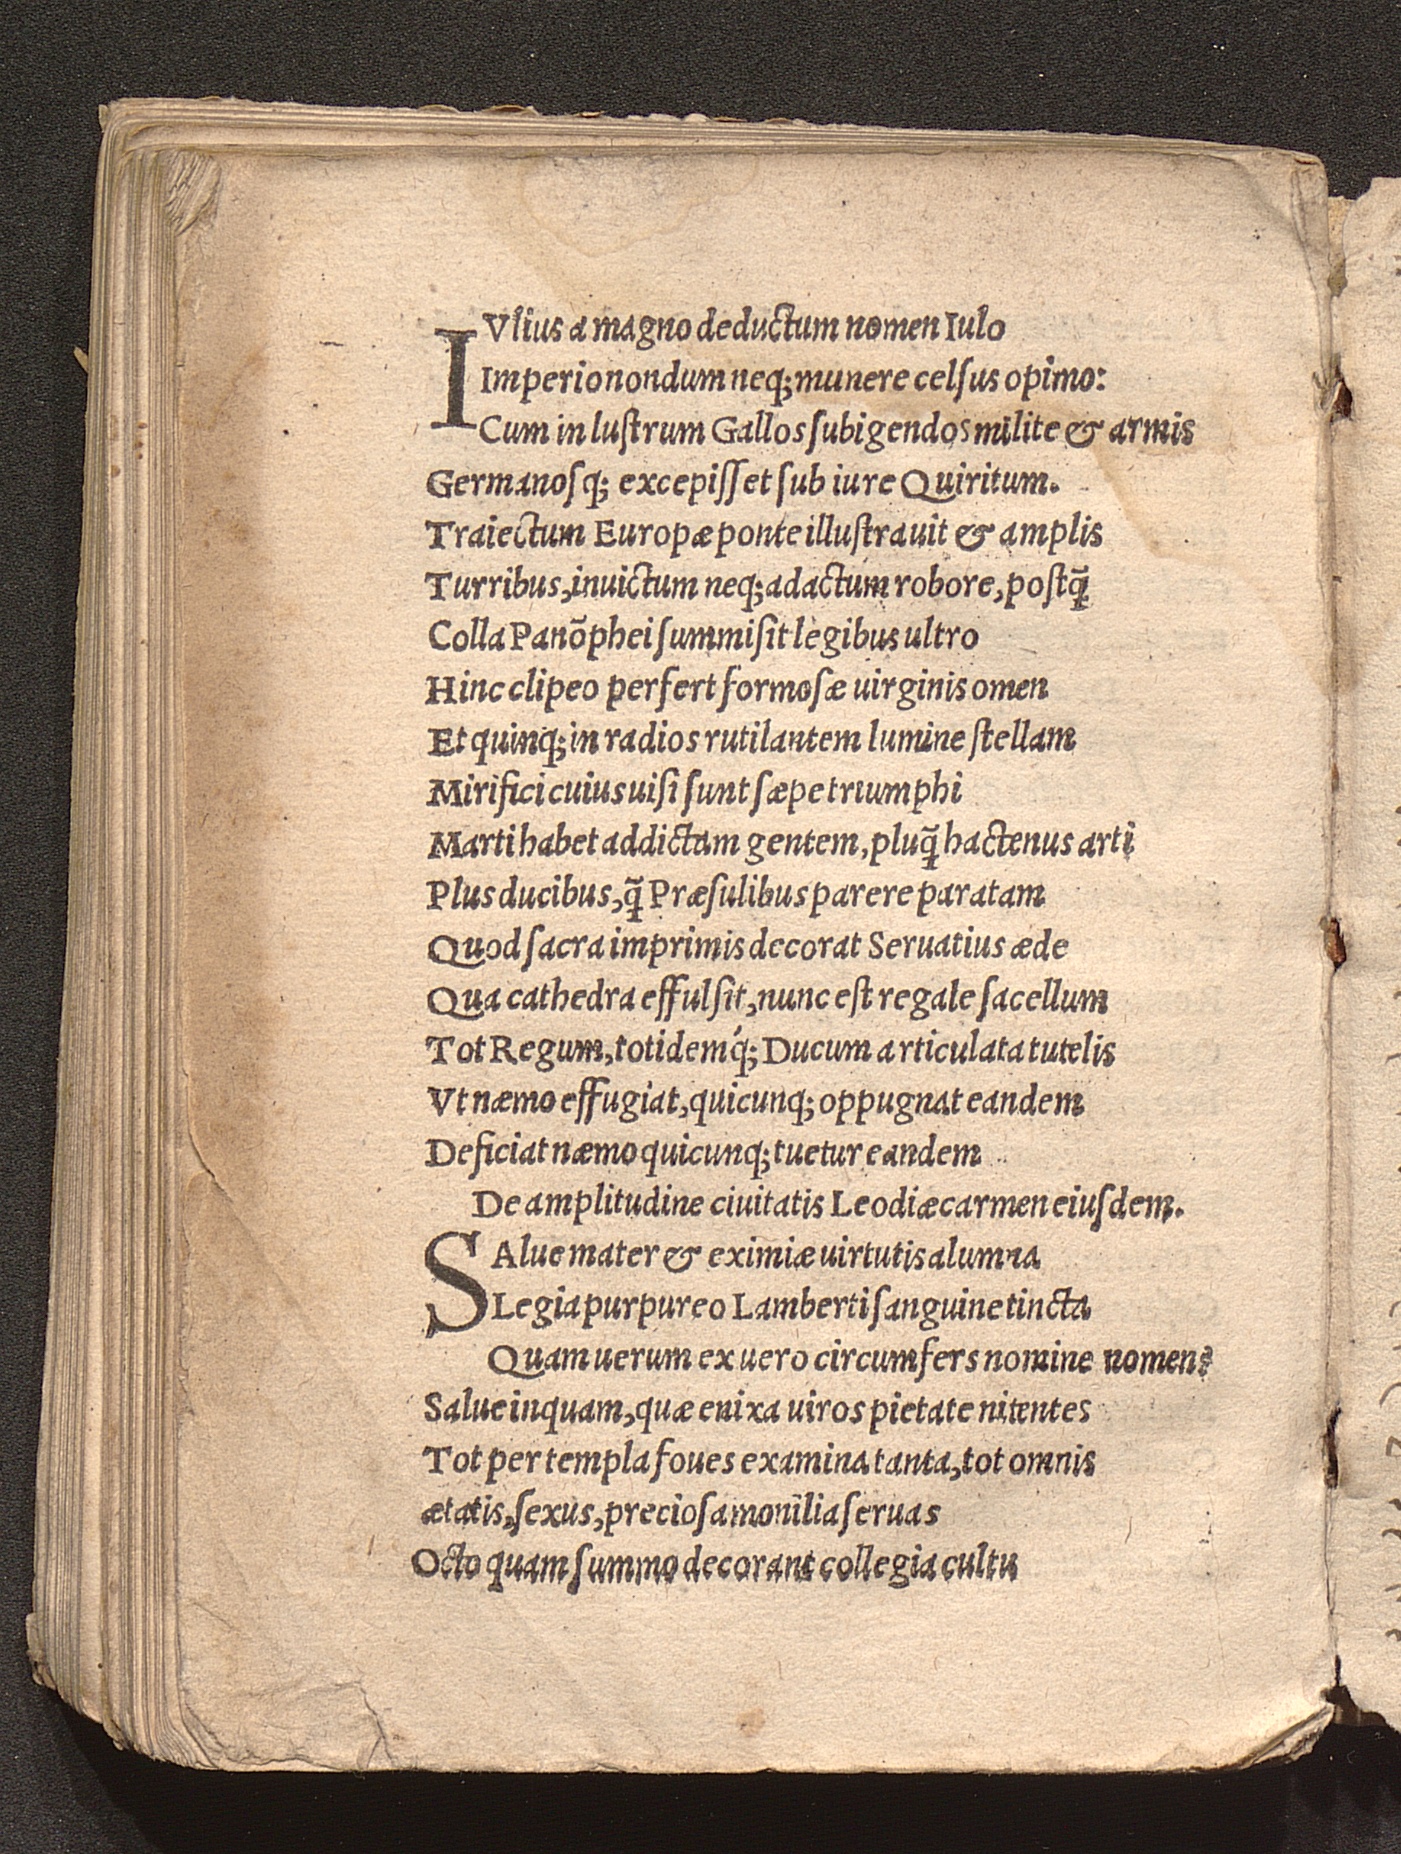 IVlius a magno deductum nomen Iulo
Imperio nondum neq; munere celſus opimo:
Cum in luſtrum Gallos ſubigendos milite & armis
Germanoſq; excepiſſet ſub iure Quiritum.
Traiectum Europæ ponte illuſtrauit & amplis
Turribus, inuictum neq; adactum robore, poſtq̃
Colla Panõphei ſummiſit legibus ultro
Hinc clipeo perfert formoſæ uirginis omen
Et quinq; in radios rutilantem lumine ſtellam
Mirifici cuius uiſi ſunt ſæpe triumphi
Marti habet addictam gentem, pluq̃ hactenus arti
Plus ducibus, q̃ Præſulibus parere paratam
Quod ſacra imprimis decorat Seruatius æde
Qua cathedra effulſit, nunc eſt regale ſacellum
Tot Regum, totidemq́; Ducum articulata tutelis
Vt næmo effugiat, quicunq; oppugnat eandem
Deficiat næmo quicunq; tuetur eandem
De amplitudine ciuitatis Leodiæ carmen eiuſdem.
SAlue mater & eximiæ uirtutis alumna
Legia purpureo Lamberti ſanguine tincta
Quam uerum ex uero circumfers nomine nomen?
Salue inquam, quæ enixa uiros pietate nitentes
Tot per templa foues examina tanta, tot omnis
ætatis, ſexus, precioſa monilia ſeruas
Octo quam ſummo decorant collegia cultu